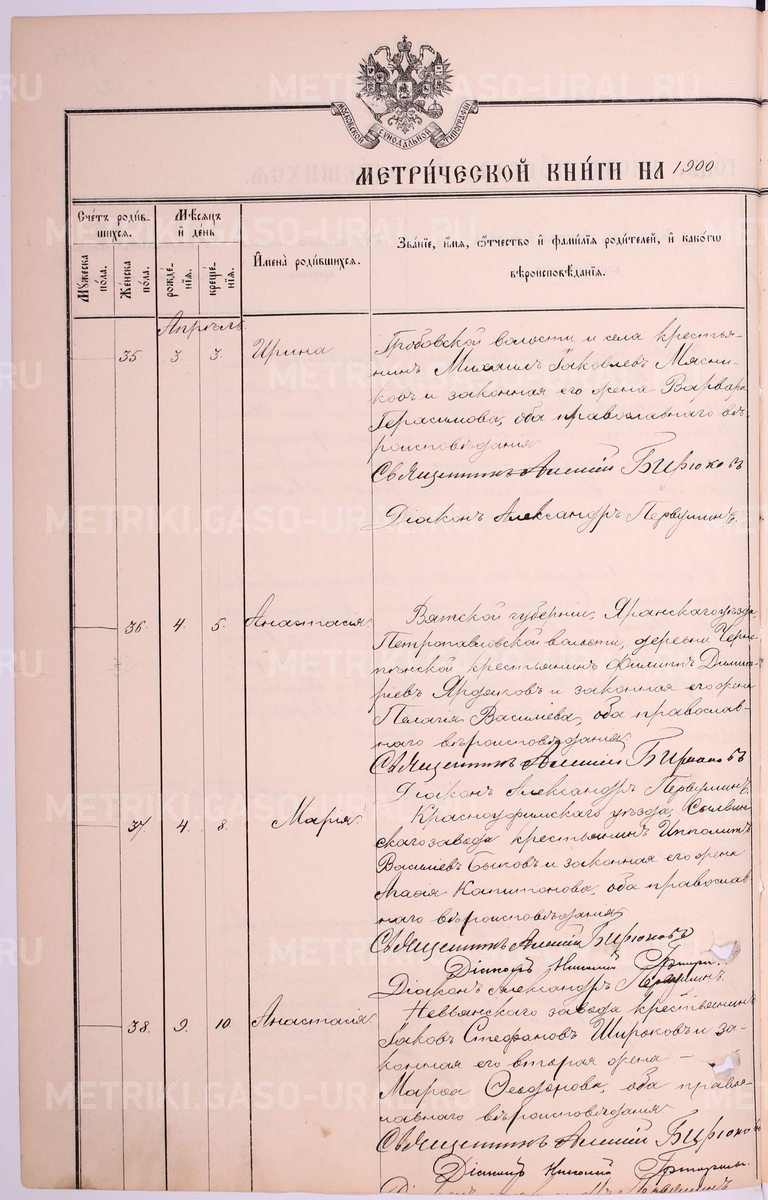 METRIKI.GASO-URAL.RU
МОСКОВСКОЙ СѴНОДАЛЬНОЙ ТИПОГРАФІИ
МЕТРИ́ЧЕСКОЙ КНИ́ГИ НА 1900
Сче́тъ роди́в-
шихся.
Мѣ́сяцъ
и҆ де́нь
И҆мена̀ роди́вшихся.
Зва́нїе, и҆́мя, ѻ҆́тчество и҆ фами́лїя роди́телей, и҆ како́гѡ
вѣроисповѣ́данїя.
Мꙋ́жеска
по́ла.
Же́нска
по́ла.
рожде́-
нїя.
креще́-
нїя.
Апрѣль
35 3. 3. Ирина
Гробовской волости и села крестья-
нинъ Михаилъ Іаковлевъ Мясни-
ковъ и законная его жена Варвара
Герасимова, оба православнаго вѣ-
роисповѣданія
Священникъ Алексій Бирюковъ
Діаконъ Александръ Первушинъ.
36. 4. 5. Анастасія
Вятской губерніи, Яранскаго уѣзда
Петропавловской волости, деревни
крестьянинъ Филиппъ Димит-
ріевъ и законная его жена
Пелагія Василіева, оба православ-
наго вѣроисповѣданія
Священникъ Алексій Бирюковъ
Діаконъ Александръ Первушинъ.
37 4. 8. Марія
Красноуфимскаго уѣзда, Сылвин-
скаго завода крестьянинъ Ипполитъ
Василіевъ Быковъ и законная его жена
Капитонова, оба православ-
наго вѣроисповѣданія
Священникъ Алексій Бирюковъ
Діаконъ Николай
Діаконъ Александръ Первушинъ.
38. 9. 10. Анастасія
Невьянскаго завода крестьянинъ
Іаковъ Стефановъ Широковъ и за-
конная его вторая жена –
Марѳа Ѳеодорова, оба право-
славнаго вѣроисповѣданія
Священникъ Алексій Бирюковъ
Діаконъ Николай